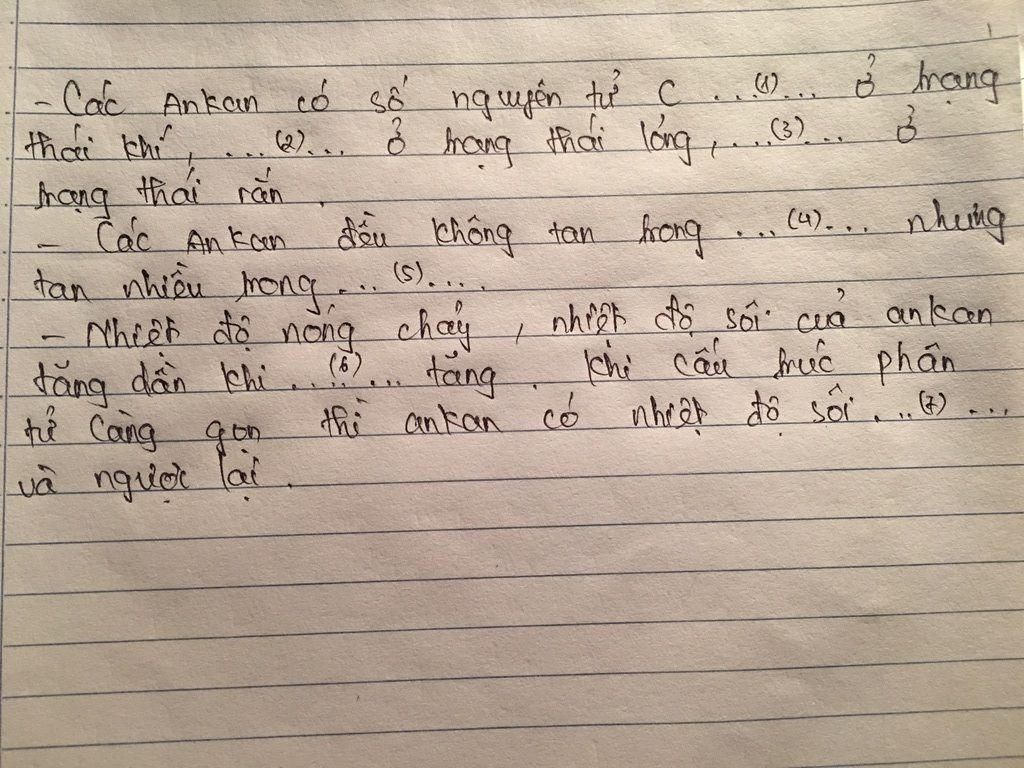 - Các Ankan có số nguyên tử C ...(1)... ở trạng
thái khí, ...(2)... ở trạng thái lỏng, ...(3)... ở
trạng thái rắn.
- Các Ankan đều không tan trong ...(4)... nhưng
tan nhiều trong ...(5)....
- Nhiệt độ nóng chảy, nhiệt độ sôi của ankan
tăng dần khi ...(6)... tăng. Khi cấu trúc phân
tử càng gọn thì ankan có nhiệt độ sôi ...(7)...
và ngược lại.